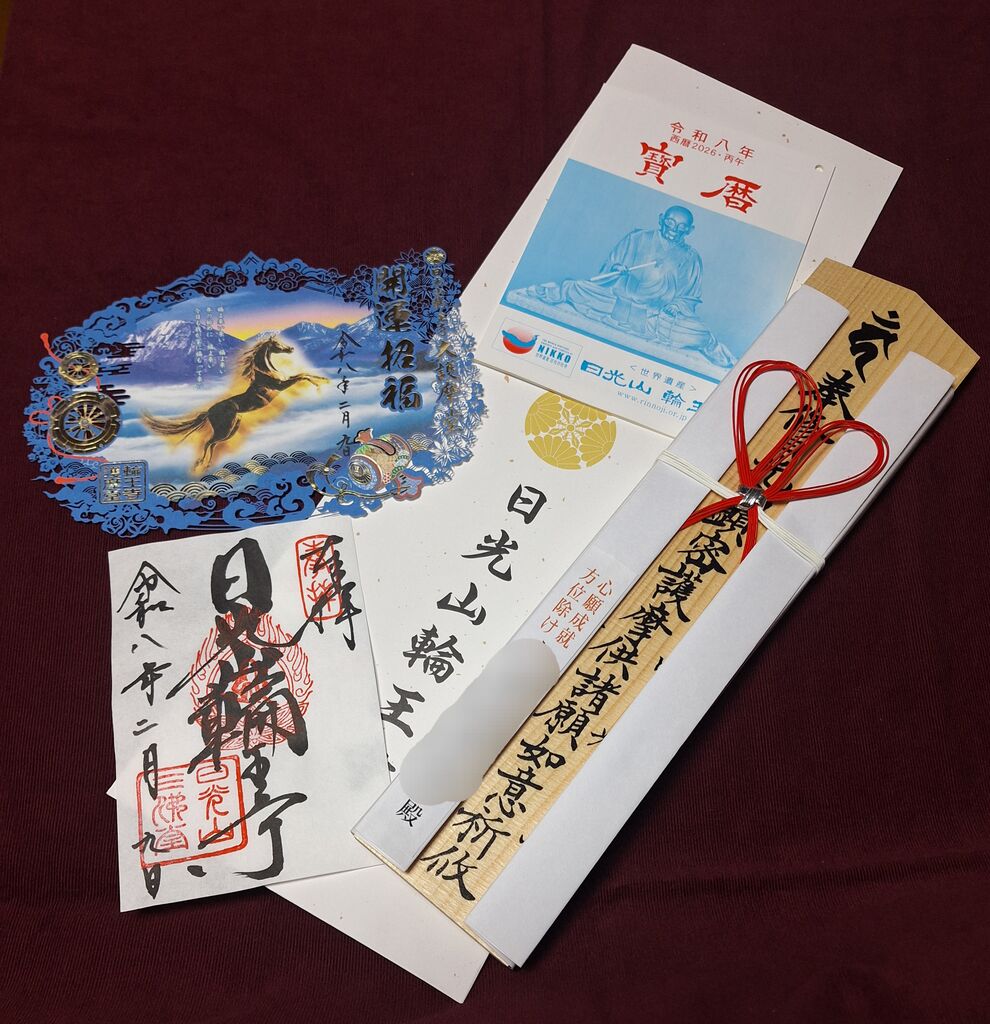 令和八年
西暦2026・丙午
寳暦
NIKKO
<世界遺産>
日光山 輪王
www.rinnoji.or.jp
開運招福
令和八年二月九日
大護摩堂
輪王寺
護摩堂
日光山輪王
奉拝
日光山
輪王寺
令和八年二月九日
日光山
三佛堂
心願成就
方位除け
殿
奉修
顕密護摩供諸願如意祈攸